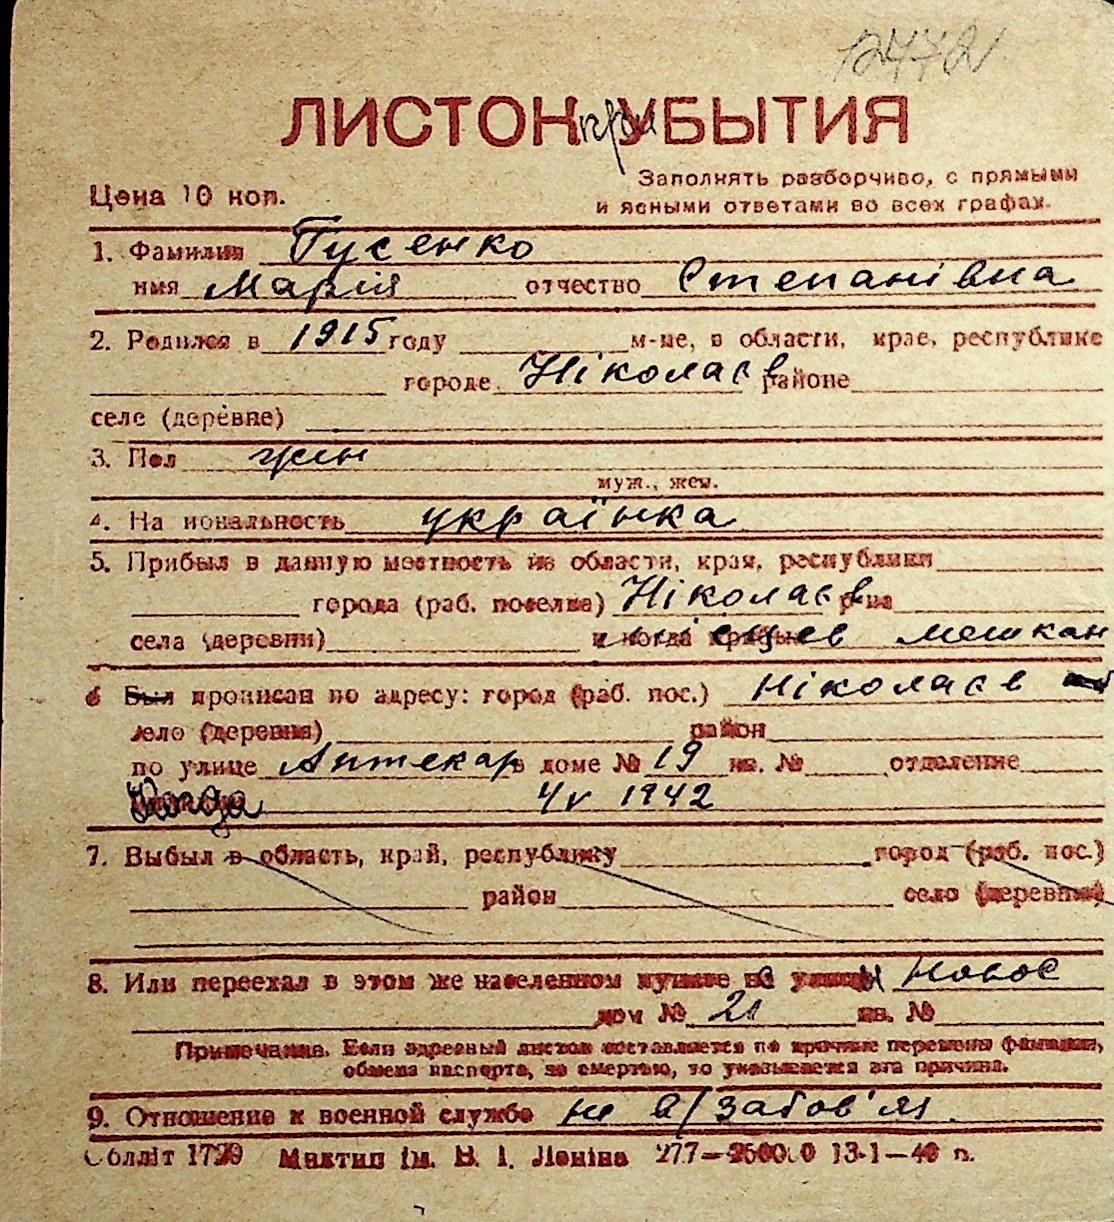 12472
ЛИСТОК при УБЫТИЯ
Цена 10 коп.
Заполнять разборчиво, с прямыми
и ясными ответами во всех графах.
1. Фамилия Гусенко
имя Марія отчество Степанівна
2. Родился в 1915 году м-це, в области, крае, республике
городе Ніколаєв районе
селе (деревне)
3. Пол жін
муж., жен.
4. На иональность українка
5. Прибыл в данную местность из области, края, республики
города (раб. поселка) Ніколаєв р-на
села (деревни) и когда прибыл місцев мешкан
6 Был прописан по адресу: город (раб. пос.) Ніколаєв
село (деревня) район
по улице Аптекар в доме № 19 кв. № отделение
Когда 4/V 1942
7. Выбыл в область, край, республику город (раб. пос.)
район село (деревня)
8. Или переехал в этом же населенном пункте на улицу Новос
дом № 21 кв. №
Примечание. Если адресный листок составляется по причине перемены фамилии,
обмена паспорта, за смертью, то указывается эта причина.
9. Отношение к военной службе не в/забов'яз.
Обллiт 1799 Миктип ім. В. І. Леніна 277— 13-1—40 п.